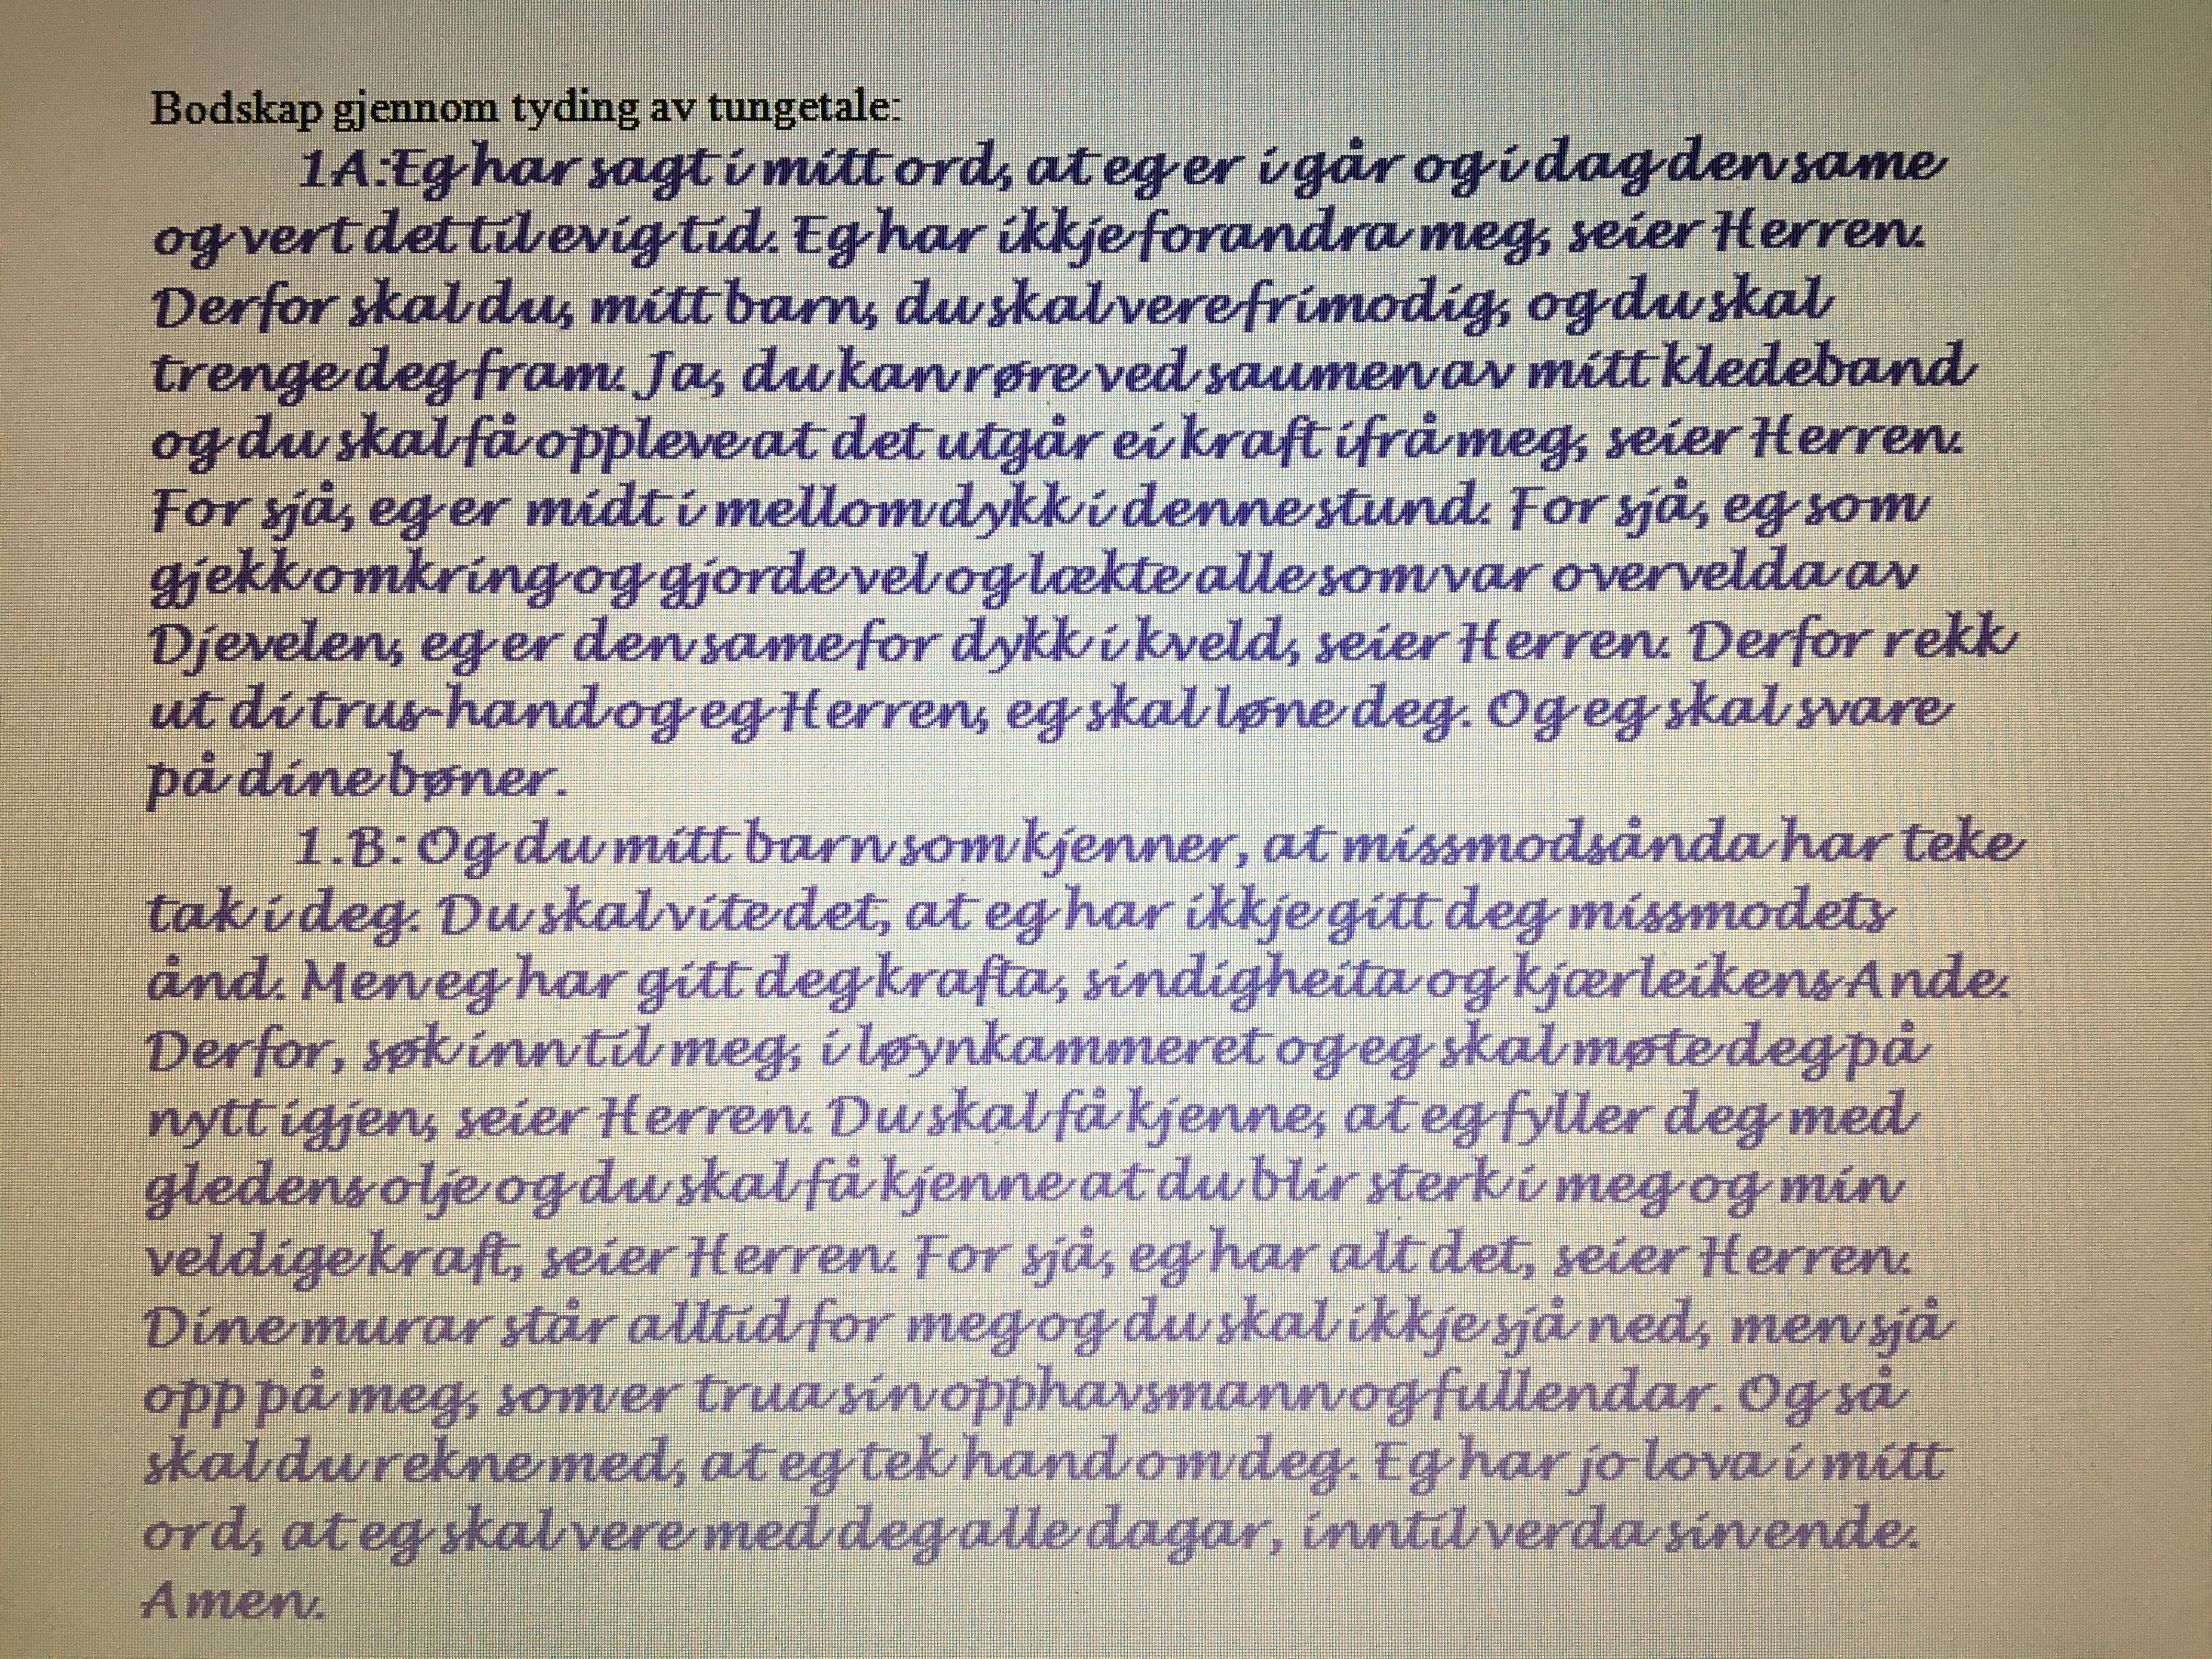 Bodskap gjennom tyding av tungetale:
1A:Eg har sagt i mitt ord, at eg er i går og i dag den same
og vert det til evig tid. Eg har ikkje forandra meg, seier Herren.
Derfor skal du, mitt barn, du skal vere frimodig, og du skal
trenge deg fram. Ja, du kan røre ved saumen av mitt kledeband
og du skal få oppleve at det utgår ei kraft ifrå meg, seier Herren.
For sjå, eg er midt i mellom dykk i denne stund. For sjå, eg som
gjekk omkring og gjorde vel og lækte alle som var overvelda av
Djevelen, eg er den same for dykk i kveld, seier Herren. Derfor rekk
ut di trus-hand og eg Herren, eg skal løne deg. Og eg skal svare
på dine bøner.
1.B: Og du mitt barn som kjenner, at missmodsånda har teke
tak i deg. Du skal vite det, at eg har ikkje gitt deg missmodets
ånd. Men eg har gitt deg krafta, sindigheita og kjærleikens Ande.
Derfor, søk inn til meg, i løynkammeret og eg skal møte deg på
nytt igjen, seier Herren. Du skal få kjenne, at eg fyller deg med
gledens olje og du skal få kjenne at du blir sterk i meg og min
veldige kraft, seier Herren. For sjå, eg har alt det, seier Herren.
Dine murar står alltid for meg og du skal ikkje sjå ned, men sjå
opp på meg, som er trua sin opphavsmann og fullendar. Og så
skal du rekne med, at eg tek hand om deg. Eg har jo lova i mitt
ord, at eg skal vere med deg alle dagar, inntil verda sin ende.
Amen.